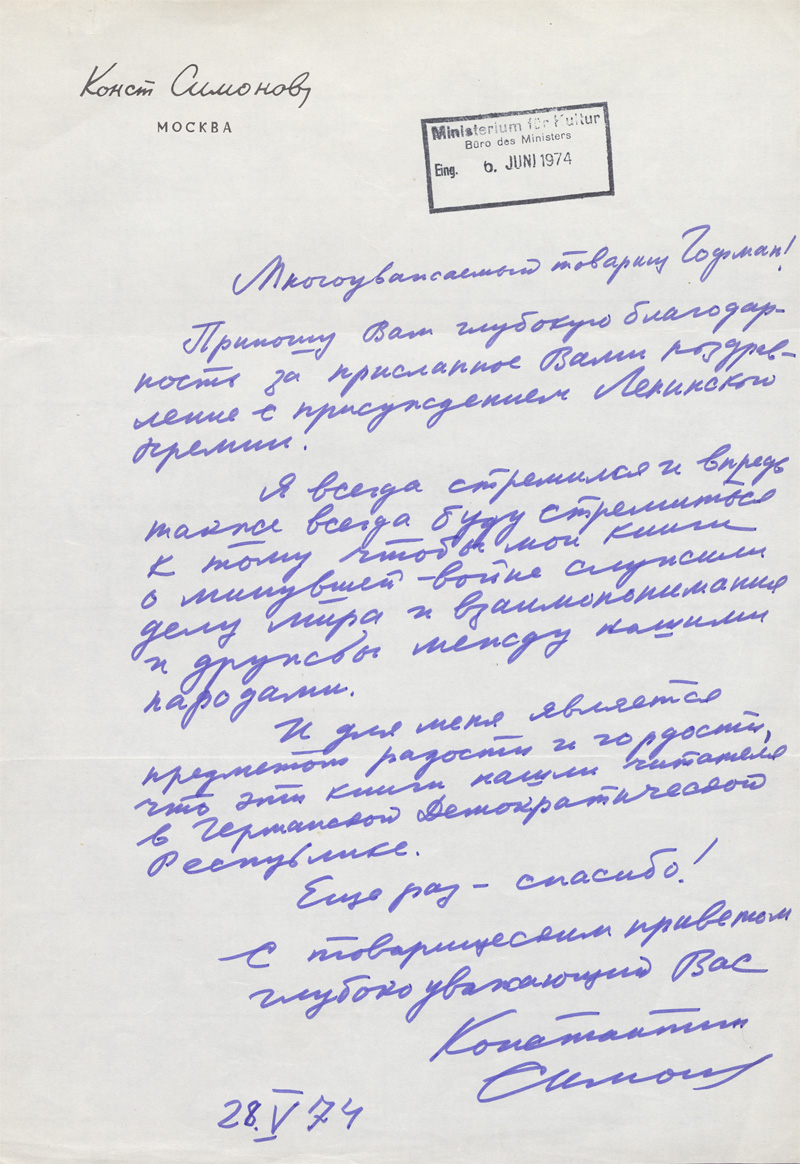 Конст Симонов
МОСКВА
Ministerium für Kultur
Büro des Ministers
Eing. 6. JUNI 1974
Многоуважаемый товарищ Гофман!
Приношу Вам глубокую благодар-
ность за присланное Вами поздрав-
ление с присуждением Ленинской
премии.
Я всегда стремился и впредь
также всегда буду стремиться
к тому чтобы мои книги
о минувшей войне служили
делу мира и взаимопонимания
и дружбы между нашими
народами.
И для меня является
предметом радости и гордости,
что эти книги нашли читателя
в Германской Демократической
Республике.
Еще раз – спасибо!
С товарищеским приветом
глубоко уважающий Вас
Константин
Симонов
28.V 74